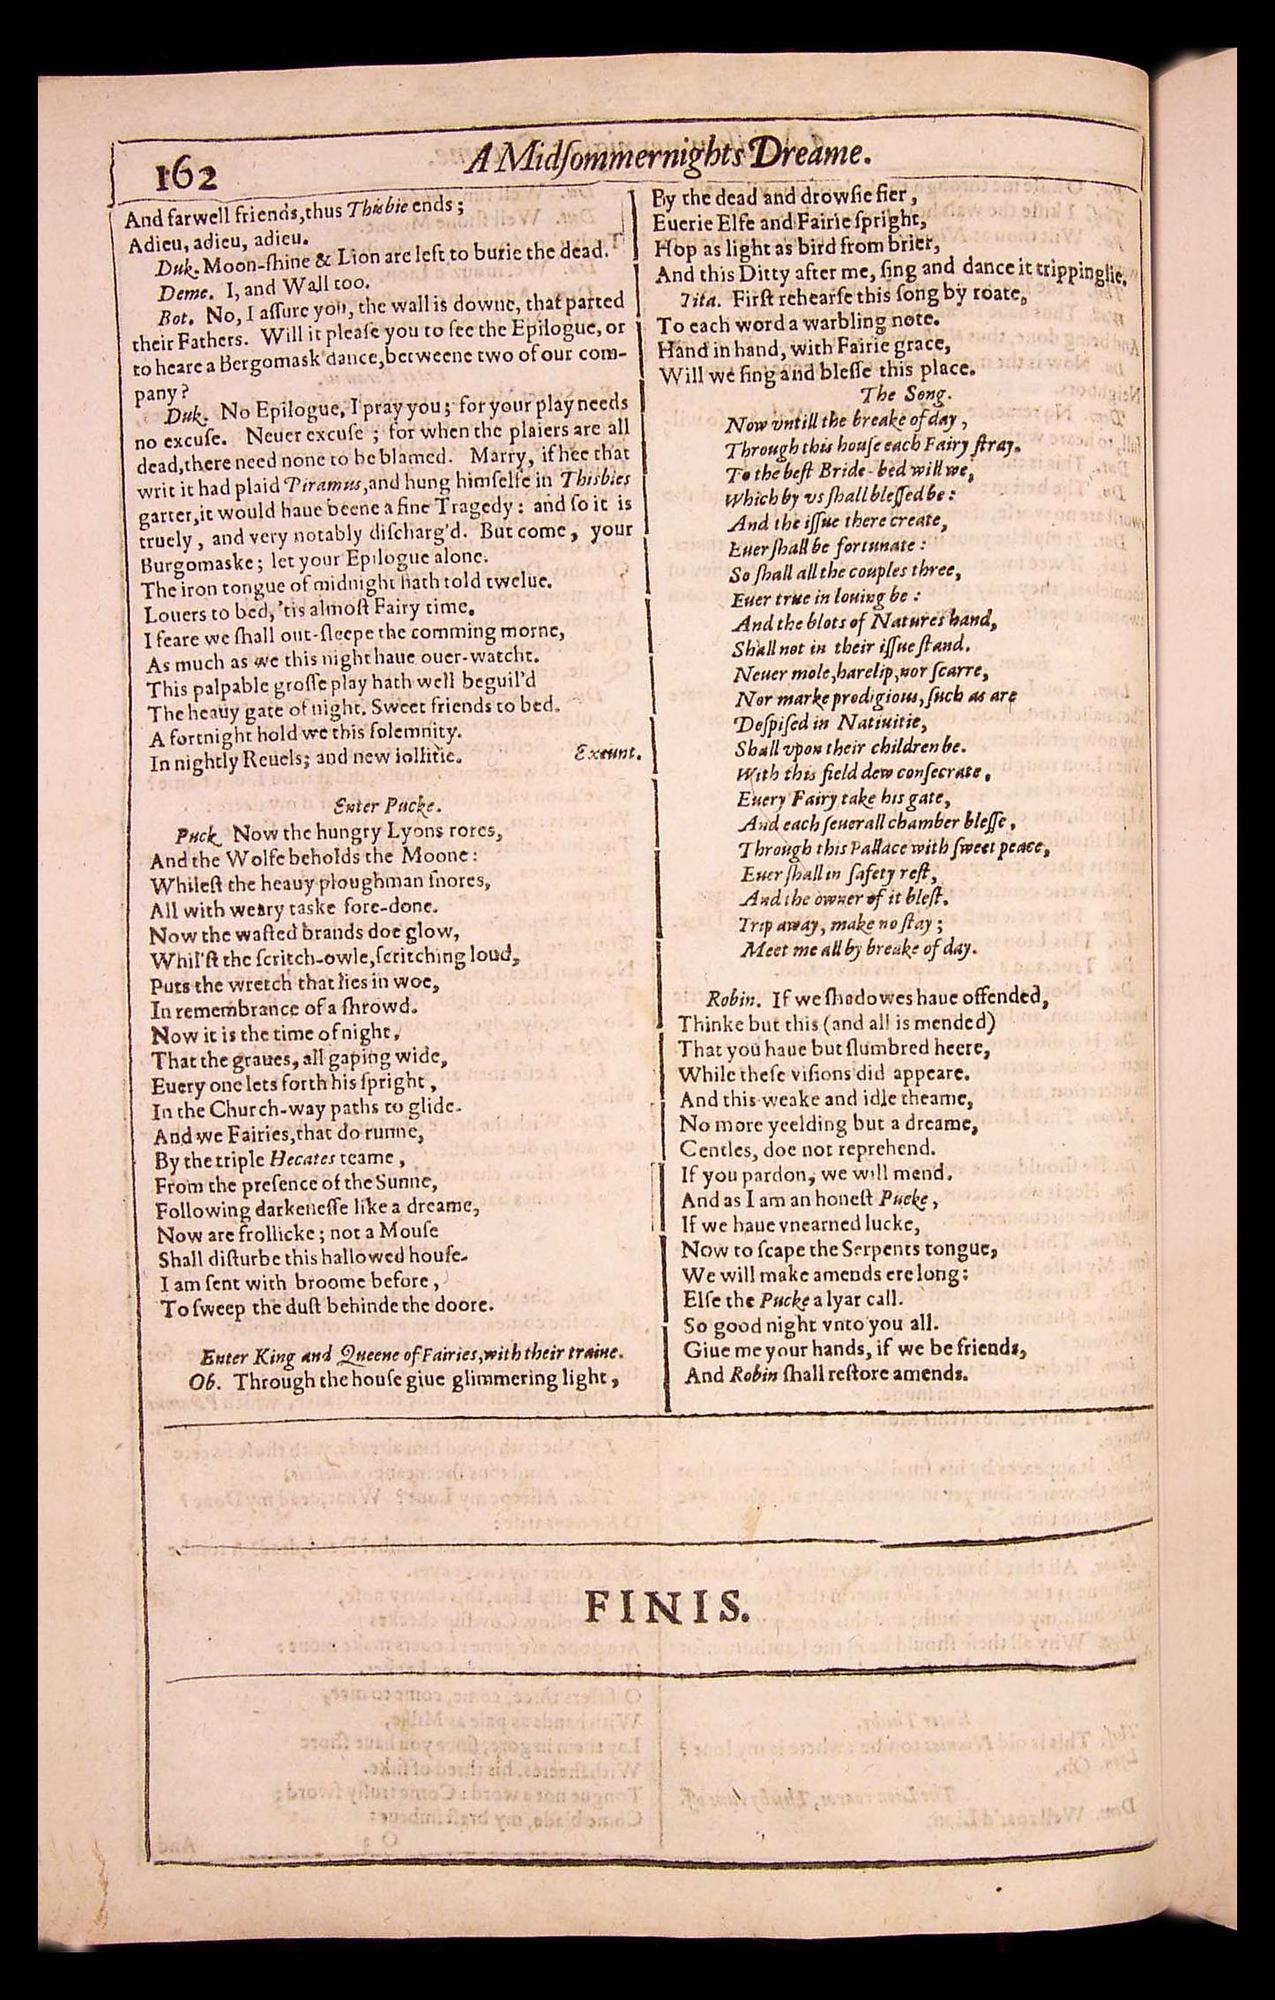 162
A Midſommernights Dreame.
And farwell friends,thus Thisbie ends;
Adieu, adieu, adieu.
Duk. Moon-ſhine & Lion are left to burie the dead.
Deme. I, and Wall too.
Bot. No, I aſſure you, the wall is downe, that parted
their Fathers. Will it pleaſe you to ſee the Epilogue, or
to heare a Bergomask dance,betweene two of our com-
pany?
Duk. No Epilogue, I pray you; for your play needs
no excuſe. Neuer excuſe ; for when the plaiers are all
dead,there need none to be blamed. Marry, if hee that
writ it had plaid Piramus,and hung himſelfe in Thisbies
garter,it would haue beene a fine Tragedy: and ſo it is
truely , and very notably diſcharg'd. But come , your
Burgomaske; let your Epilogue alone.
The iron tongue of midnight hath told twelue.
Louers to bed, 'tis almoſt Fairy time.
I feare we ſhall out-ſleepe the comming morne,
As much as we this night haue ouer-watcht.
This palpable groſſe play hath well beguil'd
The heauy gate of night. Sweet friends to bed.
A fortnight hold we this ſolemnity.
In nightly Reuels; and new iollitie. Exeunt.
Enter Pucke.
Puck Now the hungry Lyons rores,
And the Wolfe beholds the Moone:
Whileſt the heauy ploughman ſnores,
All with weary taske fore-done.
Now the waſted brands doe glow,
Whil'ſt the ſcritch-owle,ſcritching loud,
Puts the wretch that lies in woe,
In remembrance of a ſhrowd.
Now it is the time of night,
That the graues, all gaping wide,
Euery one lets forth his ſpright ,
In the Church-way paths to glide.
And we Fairies,that do runne,
By the triple Hecates teame ,
From the preſence of the Sunne,
Following darkeneſſe like a dreame,
Now are frollicke ; not a Mouſe
Shall diſturbe this hallowed houſe.
I am ſent with broome before ,
To ſweep the duſt behinde the doore.
Enter King and Queene of Fairies,with their traine.
Ob. Through the houſe giue glimmering light ,
By the dead and drowſie fier ,
Euerie Elfe and Fairie ſpright,
Hop as light as bird from brier,
And this Ditty after me, ſing and dance it trippinglie.
Tita. Firſt rehearſe this ſong by roate,
To each word a warbling note.
Hand in hand, with Fairie grace,
Will we ſing and bleſſe this place.
The Song.
Now vntill the breake of day ,
Through this houſe each Fairy ſtray.
To the beſt Bride-bed will we,
Which by vs ſhall bleſſed be :
And the iſſue there create,
Euer ſhall be fortunate :
So ſhall all the couples three,
Euer true in louing be :
And the blots of Natures hand,
Shall not in their iſſue ſtand.
Neuer mole,harelip,nor ſcarre,
Nor marke prodigious, ſuch as are
Deſpiſed in Natiuitie,
Shall vpon their children be.
With this field dew conſecrate,
Euery Fairy take his gate,
And each ſeuerall chamber bleſſe ,
Through this Pallace with ſweet peace,
Euer ſhall in ſafety reſt,
And the owner of it bleſt.
Trip away , make no ſtay ;
Meet me all by breake of day.
Robin. If we ſhadowes haue offended,
Thinke but this (and all is mended)
That you haue but ſlumbred heere,
While theſe viſions did appeare.
And this weake and idle theame,
No more yeelding but a dreame,
Centles, doe not reprehend.
If you pardon, we will mend.
And as I am an honeſt Pucke ,
If we haue vnearned lucke,
Now to ſcape the Serpents tongue,
We will make amends ere long:
Elſe the Pucke a lyar call.
So good night vnto you all.
Giue me your hands, if we be friends,
And Robin ſhall reſtore amends.
FINIS.